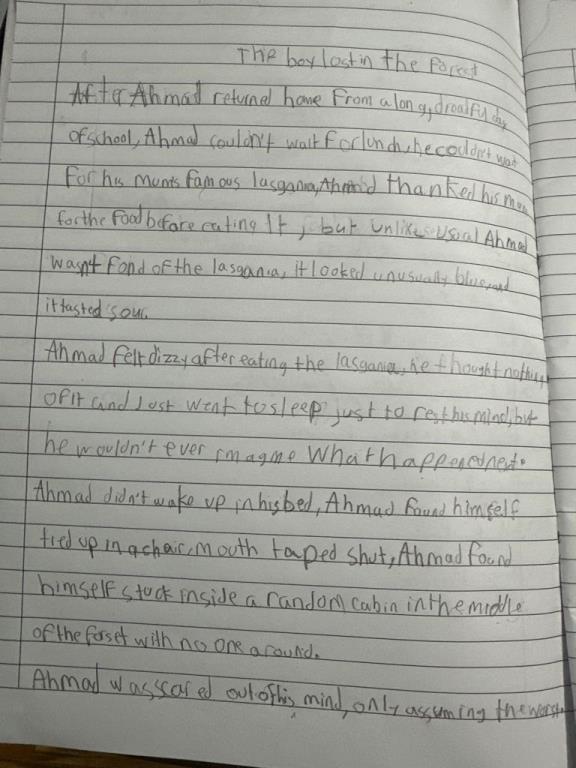 The boy lost in the forest
After Ahmad returned home from a long, dreadful day
of school, Ahmad couldn't wait for lunch, he couldn't wait
for his mum's famous lasgania, Ahmad thanked his mum
for the food before eating it, but unlike usual Ahmad
wasn't fond of the lasgania, it looked unusually blue, and
it tasted sour.
Ahmad felt dizzy after eating the lasgania, he thought nothing
of it and just went to sleep just to rest his mind, but
he wouldn't ever imagine what happened next.
Ahmad didn't wake up in his bed, Ahmad found himself
tied up in a chair, mouth taped shut, Ahmad found
himself stuck inside a random cabin in the middle
of the forset with no one around.
Ahmad was scared out of his mind, only assuming the worst.